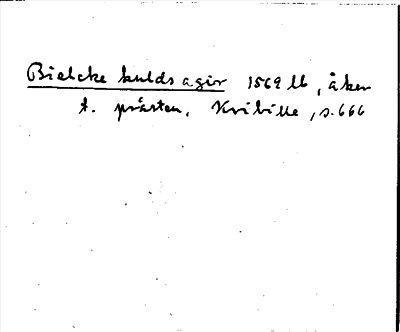 Bielcke kulds agir 1569 lb, åker
t. prästen. Kvibille, s. 666